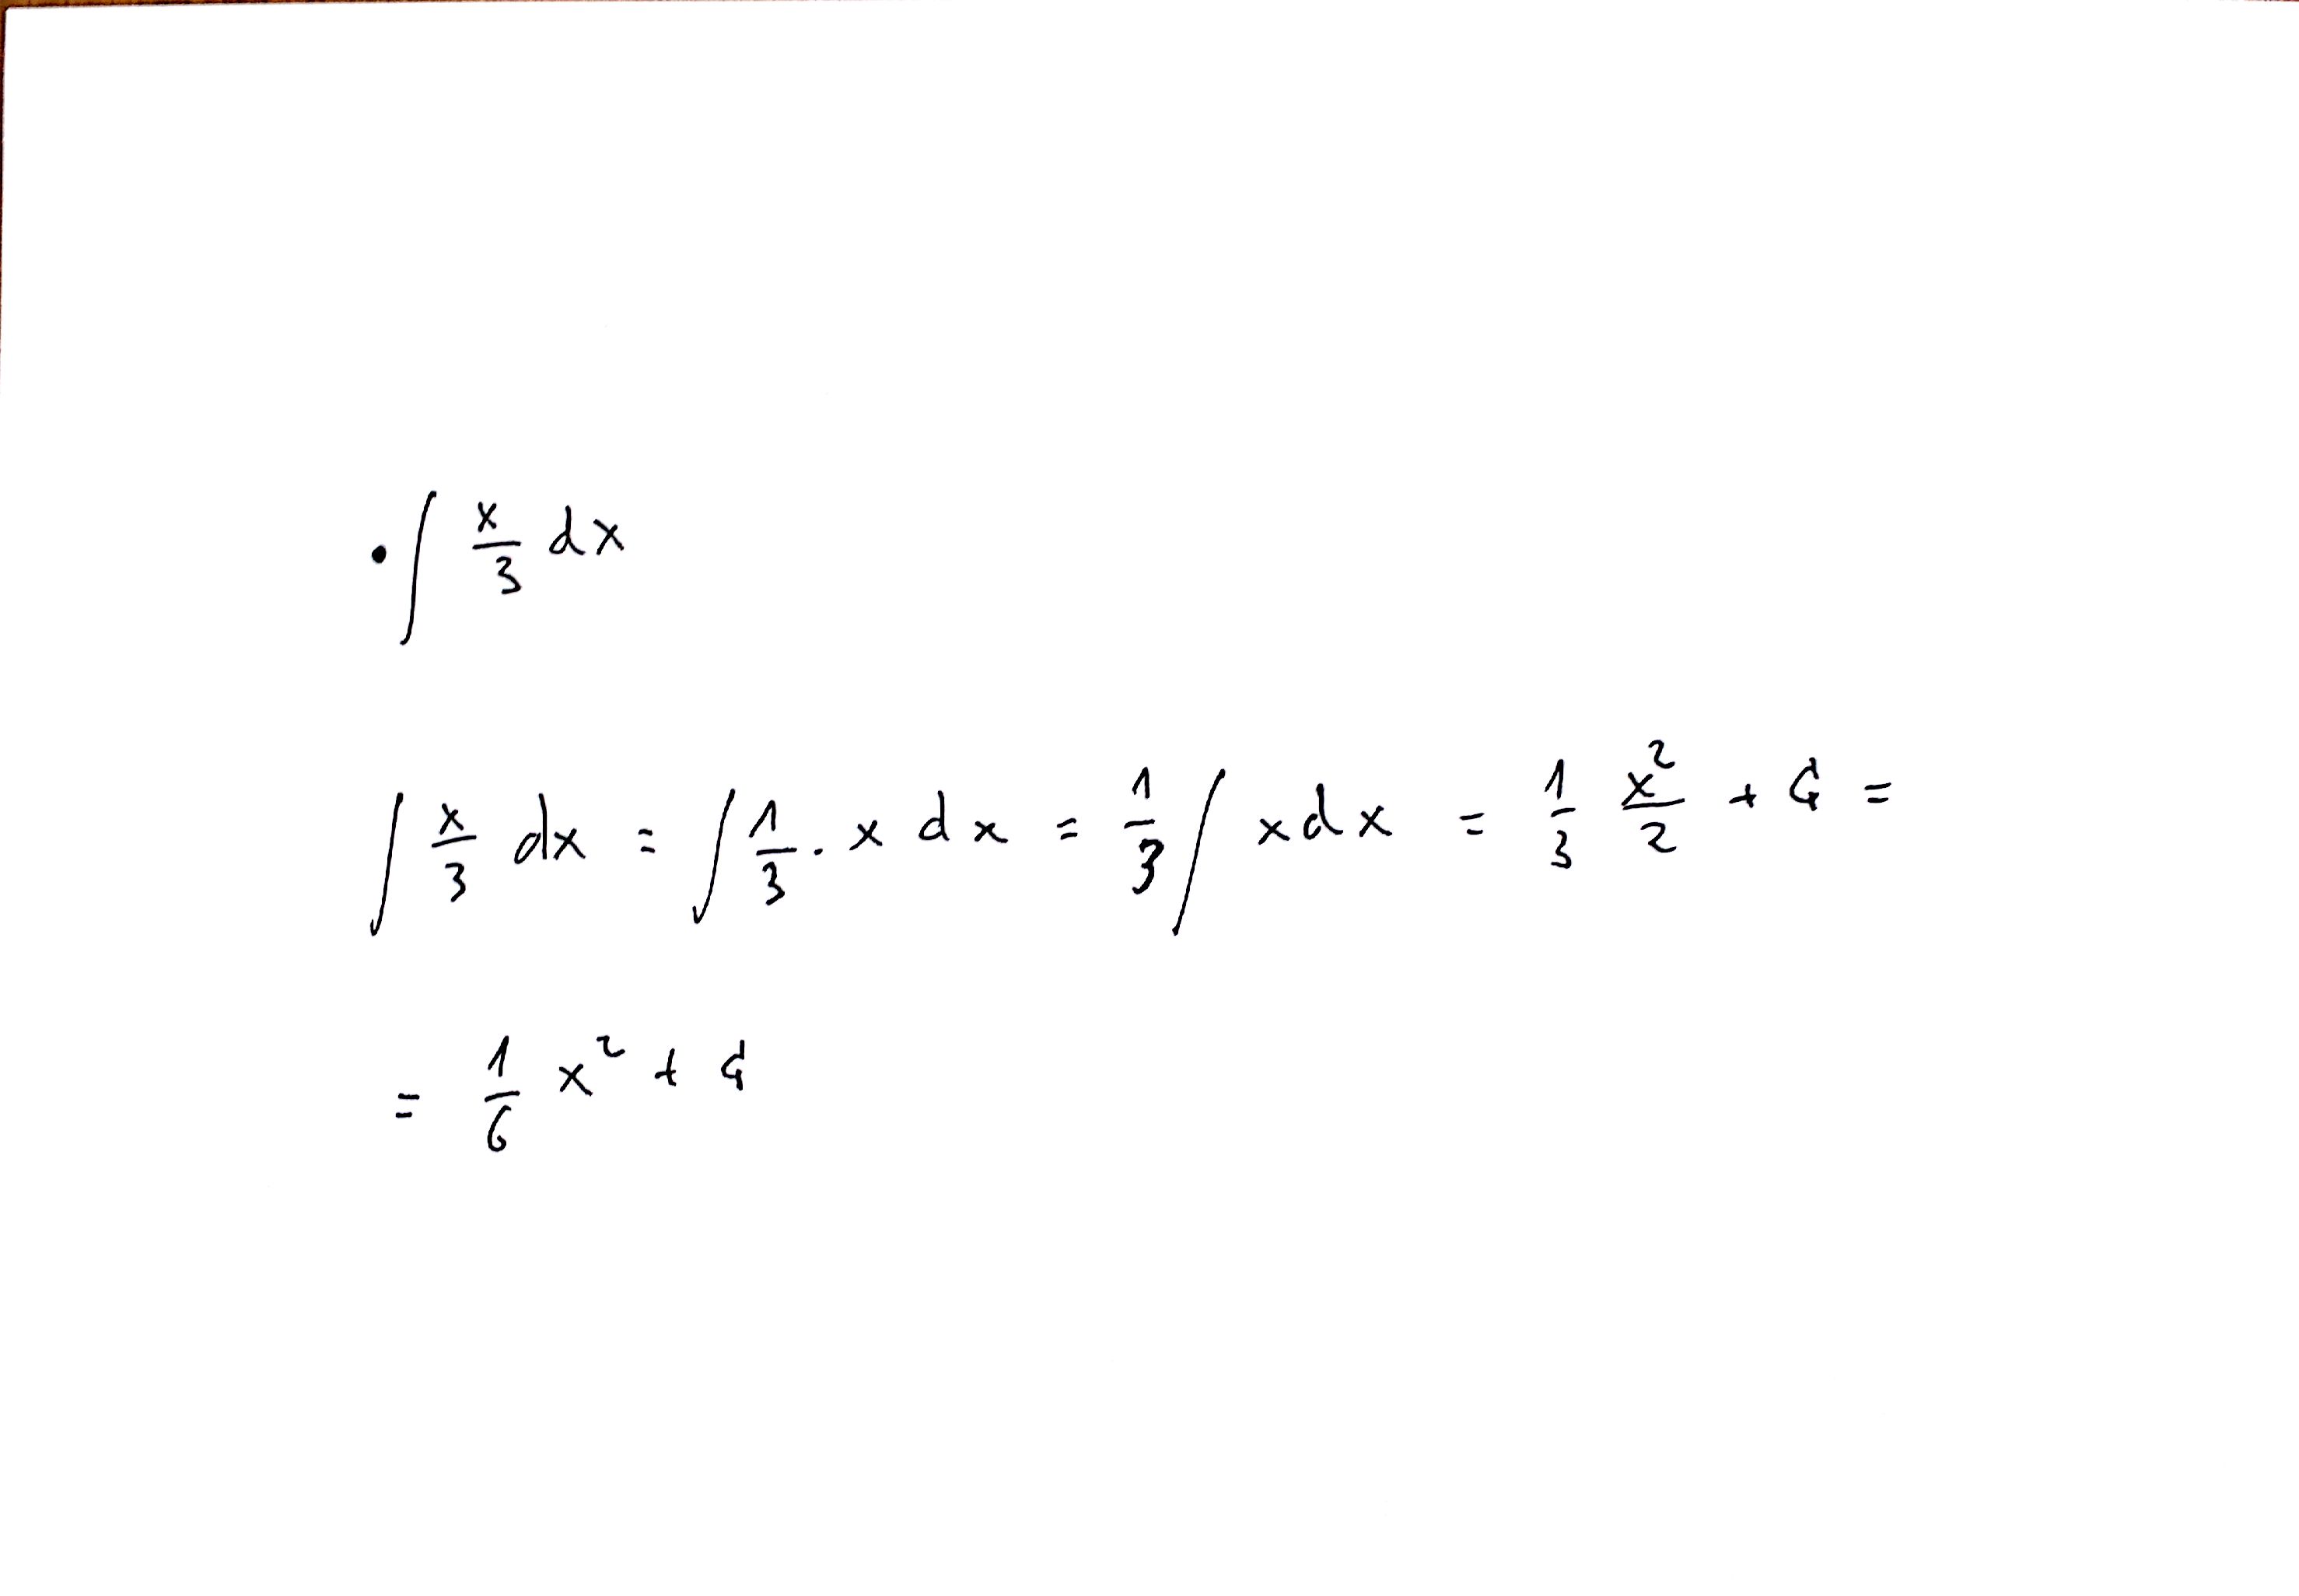 • ∫ x/3 dx
∫ x/3 dx = ∫ 1/3 · x dx = 1/3 ∫ x dx = 1/3 x²/2 + C =
= 1/6 x² + C